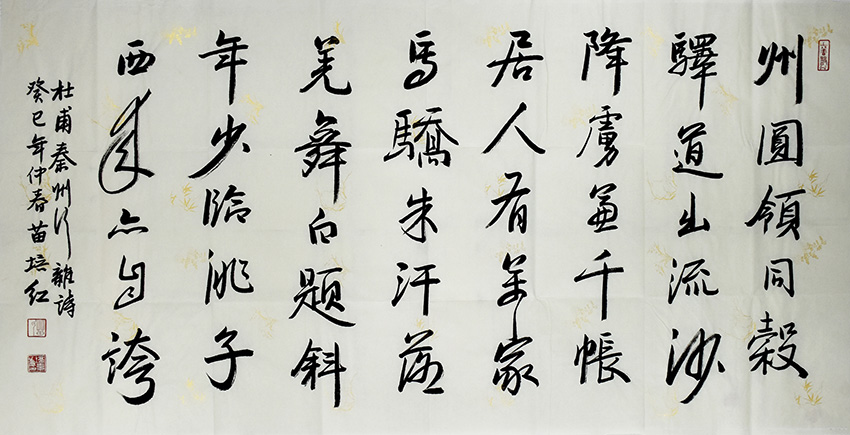 州圓領同穀
驛道出流沙
降虜兼千帳
居人有萬家
馬驕朱汗落
羌舞白題斜
年少臨洮子
西來亦自誇
杜甫秦州行雜詩
癸巳年仲春苗培红